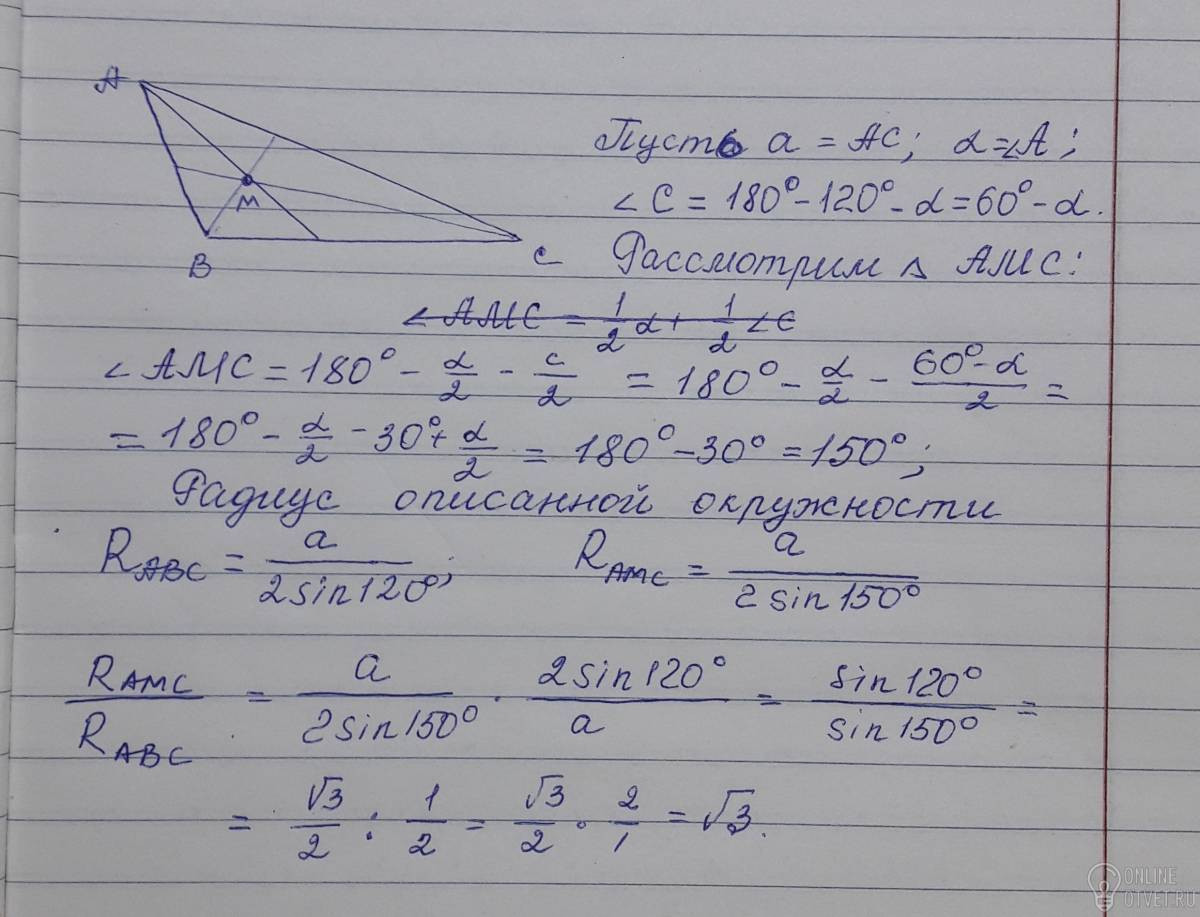 A
M
B
C
Пусть a = AC; α=∠A;
∠C = 180° - 120° - α = 60° - α.
Рассмотрим △ AMC:
∠AMC = 1/2 α + 1/2 ∠C
∠AMC = 180° - α/2 - C/2 = 180° - α/2 - (60° - α)/2 =
= 180° - α/2 - 30° + α/2 = 180° - 30° = 150°;
Радиус описанной окружности
R ABC = a/(2 sin 120°); R AMC = a/(2 sin 150°)
R AMC / R ABC = a/(2 sin 150°) · (2 sin 120°)/a = sin 120°/sin 150° =
= √3/2 : 1/2 = √3/2 · 2/1 = √3.
ONLINE
OTVET.RU